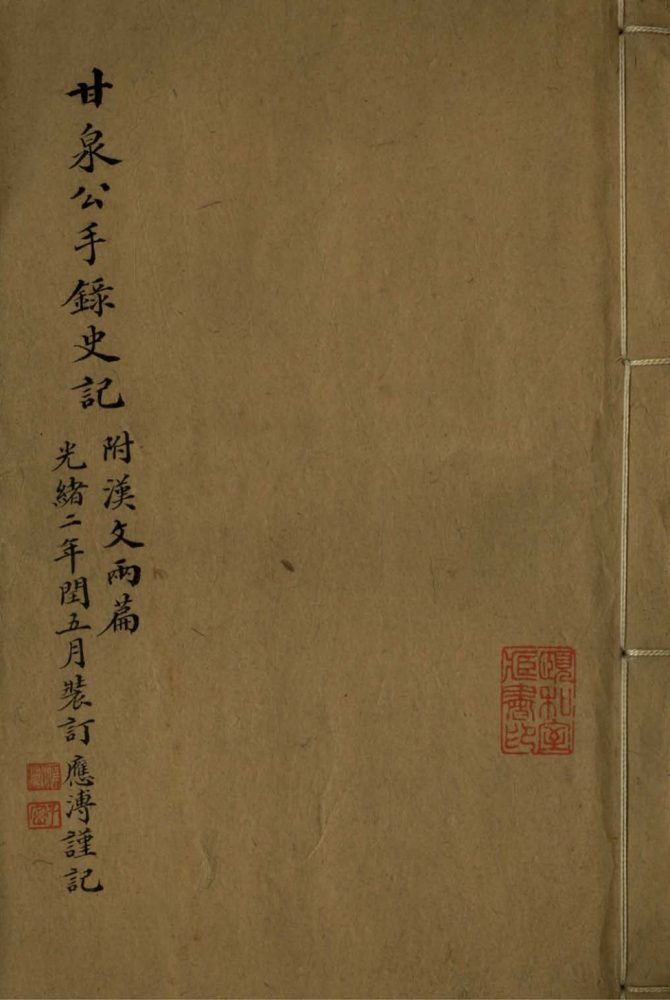 甘泉公手錄史記
附漢文兩篇
光緒二年閏五月裝訂應溥謹記
頤和室
臧書印